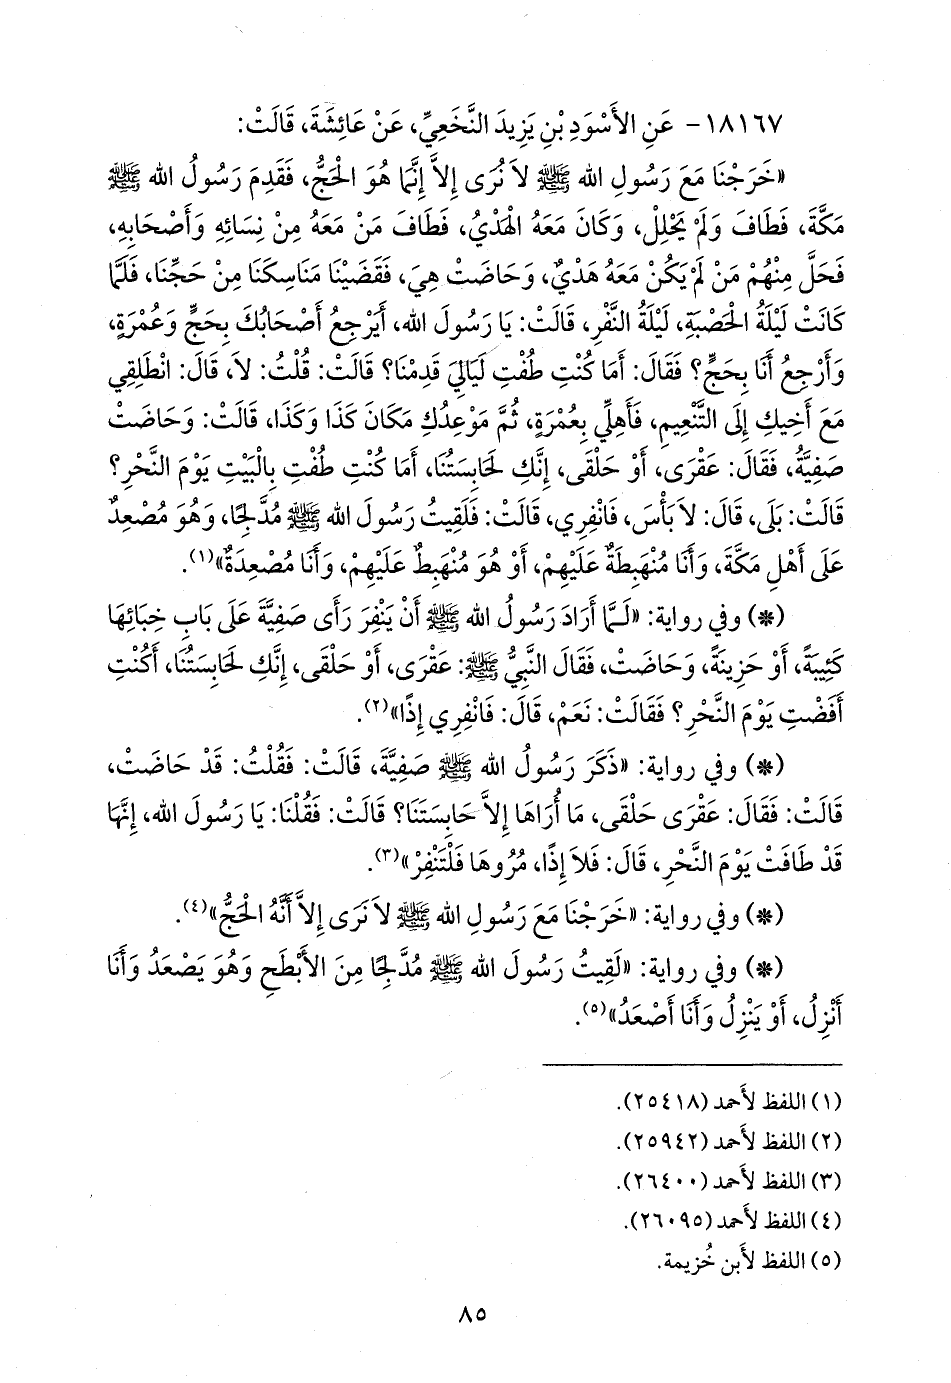 ١٨١٦٧- عَنِ الأَسْوَدِ بْنِ يَزِيدَ النَّخَعِيِّ، عَنْ عَائِشَةَ، قَالَتْ:
«خَرَجْنَا مَعَ رَسُولِ الله ﷺ لاَ نُرَى إِلاَّ إِنَّمَا هُوَ الْحَجُّ، فَقَدِمَ رَسُولُ الله ﷺ
مَكَّةَ، فَطَافَ وَلَمْ يَحْلِلْ، وَكَانَ مَعَهُ الْهَدْيُ، فَطَافَ مَنْ مَعَهُ مِنْ نِسَائِهِ وَأَصْحَابِهِ،
فَحَلَّ مِنْهُمْ مَنْ لَمْ يَكُنْ مَعَهُ هَدْيٌ، وَحَاضَتْ هِيَ، فَقَضَيْنَا مَنَاسِكَنَا مِنْ حَجِّنَا، فَلَمَّا
كَانَتْ لَيْلَةُ الْحَصْبَةِ، لَيْلَةُ النَّفْرِ، قَالَتْ: يَا رَسُولَ الله، أَيَرْجِعُ أَصْحَابُكَ بِحَجٍّ وَعُمْرَةٍ،
وَأَرْجِعُ أَنَا بِحَجٍّ؟ فَقَالَ: أَمَا كُنْتِ طُفْتِ لَيَالِيَ قَدِمْنَا؟ قَالَتْ: قُلْتُ: لاَ، قَالَ: انْطَلِقِي
مَعَ أَخِيكِ إِلَى التَّنْعِيمِ، فَأَهِلِّي بِعُمْرَةٍ، ثُمَّ مَوْعِدُكِ مَكَانَ كَذَا وَكَذَا، قَالَتْ: وَحَاضَتْ
صَفِيَّةُ، فَقَالَ: عَقْرَى، أَوْ حَلْقَى، إِنَّكِ لَحَابِسَتُنَا، أَمَا كُنْتِ طُفْتِ بِالْبَيْتِ يَوْمَ النَّحْرِ؟
قَالَتْ: بَلَى، قَالَ: لاَ بَأْسَ، فَانْفِرِي، قَالَتْ: فَلَقِيتُ رَسُولَ الله ﷺ مُدَّلِجًا، وَهُوَ مُصْعِدٌ
عَلَى أَهْلِ مَكَّةَ، وَأَنَا مُنْهَبِطَةٌ عَلَيْهِمْ، أَوْ هُوَ مُنْهَبِطٌ عَلَيْهِمْ، وَأَنَا مُصْعِدَةٌ»(١).
(*) وفي رواية: «لَمَّا أَرَادَ رَسُولُ الله ﷺ أَنْ يَنْفِرَ رَأَى صَفِيَّةَ عَلَى بَابِ خِبَائِهَا
كَئِيبَةً، أَوْ حَزِينَةً، وَحَاضَتْ، فَقَالَ النَّبِيُّ ﷺ: عَقْرَى، أَوْ حَلْقَى، إِنَّكِ لَحَابِسَتُنَا، أَكُنْتِ
أَفَضْتِ يَوْمَ النَّحْرِ؟ فَقَالَتْ: نَعَمْ، قَالَ: فَانْفِرِي إِذًا»(٢).
(*) وفي رواية: «ذَكَرَ رَسُولُ الله ﷺ صَفِيَّةَ، قَالَتْ: فَقُلْتُ: قَدْ حَاضَتْ،
قَالَتْ: فَقَالَ: عَقْرَى حَلْقَى، مَا أُرَاهَا إِلاَّ حَابِسَتَنَا؟ قَالَتْ: فَقُلْنَا: يَا رَسُولَ الله، إِنَّهَا
قَدْ طَافَتْ يَوْمَ النَّحْرِ، قَالَ: فَلاَ إِذًا، مُرُوهَا فَلْتَنْفِرْ»(٣).
(*) وفي رواية: «خَرَجْنَا مَعَ رَسُولِ الله ﷺ لاَ نَرَى إِلاَّ أَنَّهُ الْحَجُّ»(٤).
(*) وفي رواية: «لَقِيتُ رَسُولَ الله ﷺ مُدَّلِجًا مِنَ الأَبْطَحِ وَهُوَ يَصْعَدُ وَأَنَا
أَنْزِلُ، أَوْ يَنْزِلُ وَأَنَا أَصْعَدُ»(٥).
(١) اللفظ لأَحمد (٢٥٤١٨).
(٢) اللفظ لأَحمد (٢٥٩٤٢).
(٣) اللفظ لأَحمد (٢٦٤٠٠).
(٤) اللفظ لأَحمد (٢٦٠٩٥).
(٥) اللفظ لأَبن خُزيمة.
٨٥